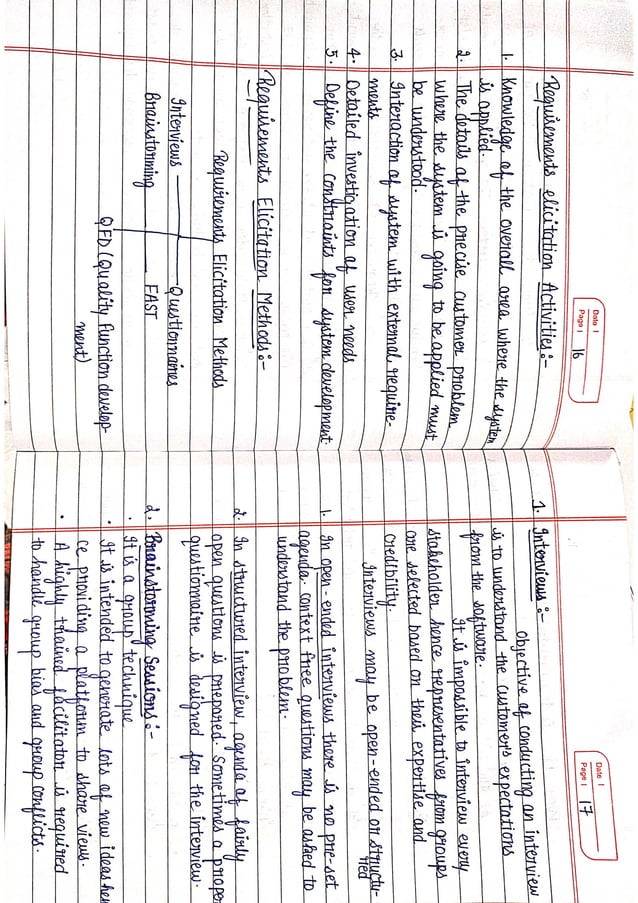 Date |
Page | 16
Requirements elicitation Activities:-
1. Knowledge of the overall area where the system
is applied.
2. The details of the precise customer problem
where the system is going to be applied must
be understood.
3. Interaction of system with external require-
ments
4. Detailed investigation of user needs
5. Define the constraints for system development
Requirements Elicitation Methods:-
Requirements Elicitation Methods
Interviews Questionnaires
Brainstorming FAST
QFD (Quality function develop-
ment)
Date |
Page | 17
1. Interviews:-
Objective of conducting an interview
is to understand the customer's expectations
from the software.
It is impossible to interview every
stakeholder hence representatives from groups
are selected based on their expertise and
credibility.
Interviews may be open-ended or structu-
red
1. In open-ended interviews there is no pre-set
agenda. context free questions may be asked to
understand the problem.
2. In structured interview, agenda of fairly
open questions is prepared. Sometimes a proper
questionnaire is designed for the interview.
2. Brainstorming Sessions:-
• It is a group technique
• It is intended to generate lots of new ideas hen
ce providing a platform to share views.
• A highly trained facilitator is required
to handle group bias and group conflicts.